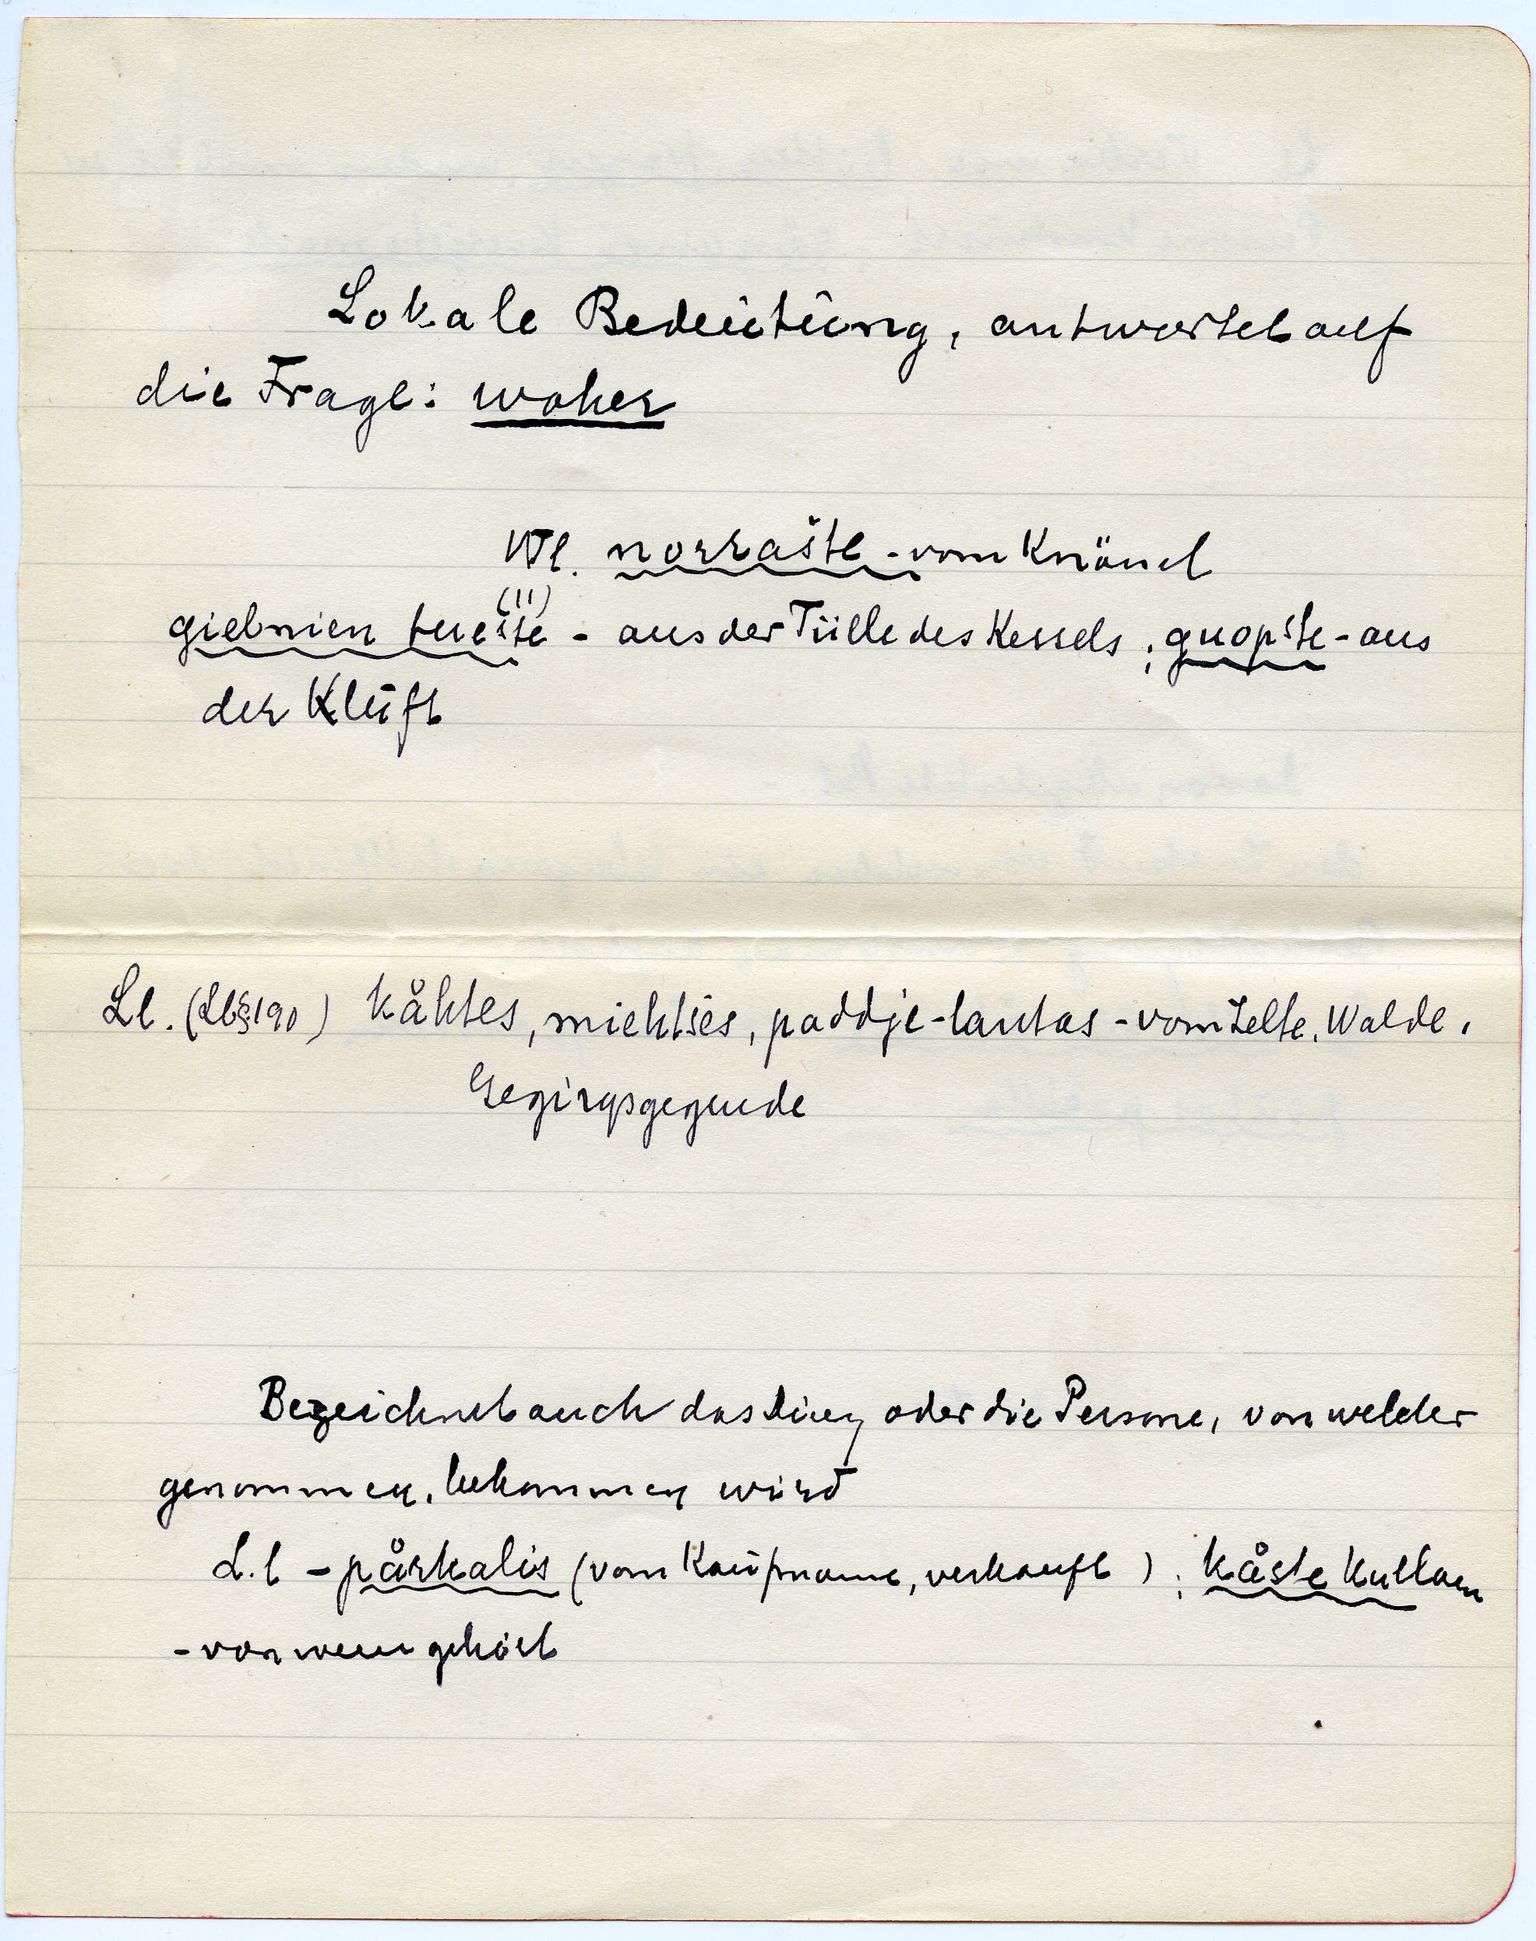 Lokale Bedeutung, antwortet auf
die Frage: woher
Wl. norrašte - vom Knäuel
(11)
giebnien tuešte - aus der Tülle des Kessels; guopšte - aus
der Kluft
Ll. (Lb§190) kåhtes, miehtses, paddje-lantas - vom Zelte, Walde,
Gegirgsgegende
Bezeichnet auch das Ding oder die Persone, von welcher
genommen, bekommen wird
L.l - pårkalis (vom Kaufmanne, verkauft); kåste kullam
- von wem gehört